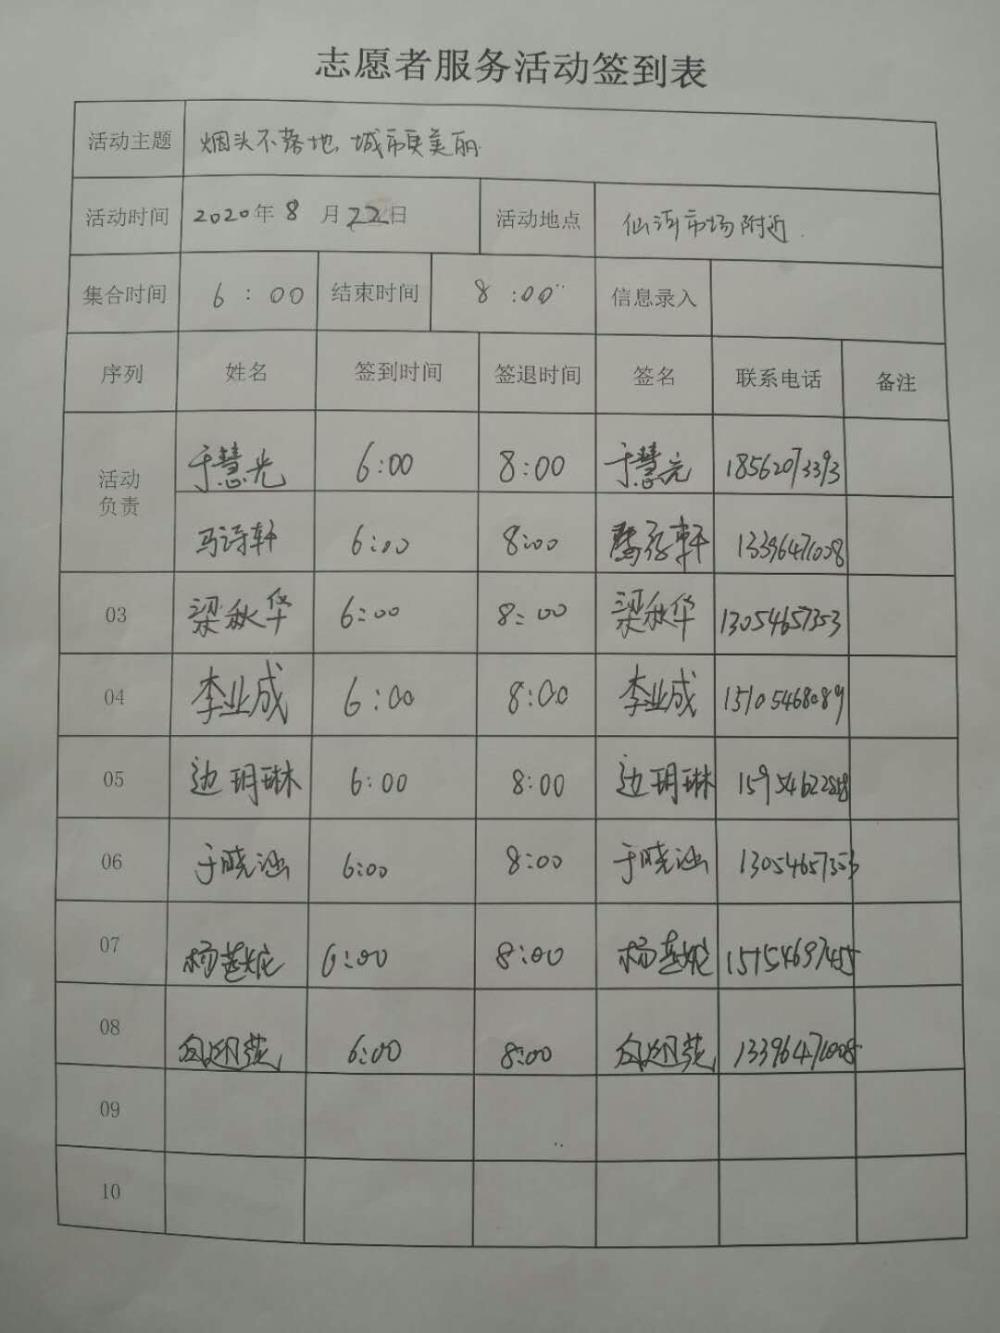 志愿者服务活动签到表
活动主题 烟头不落地,城市更美丽
活动时间 2020年8月22日 活动地点 仙河市场附近.
集合时间 6:00 结束时间 8:00 信息录入
序列 姓名 签到时间 签退时间 签名 联系电话 备注
活动负责 于慧光 6:00 8:00 于慧光 18562073393
马诗轩 6:00 8:00 轩 13396471008
03 梁秋华 6:00 8:00 梁秋华 13054657353
04 李业成 6:00 8:00 李业成 15105468089
05 边玥琳 6:00 8:00 边玥琳
06 于晓涵 6:00 8:00 于晓涵 13054657353
07 杨 6:00 8:00 杨 15154697455
08 6:00 8:00 13396471008
09
10